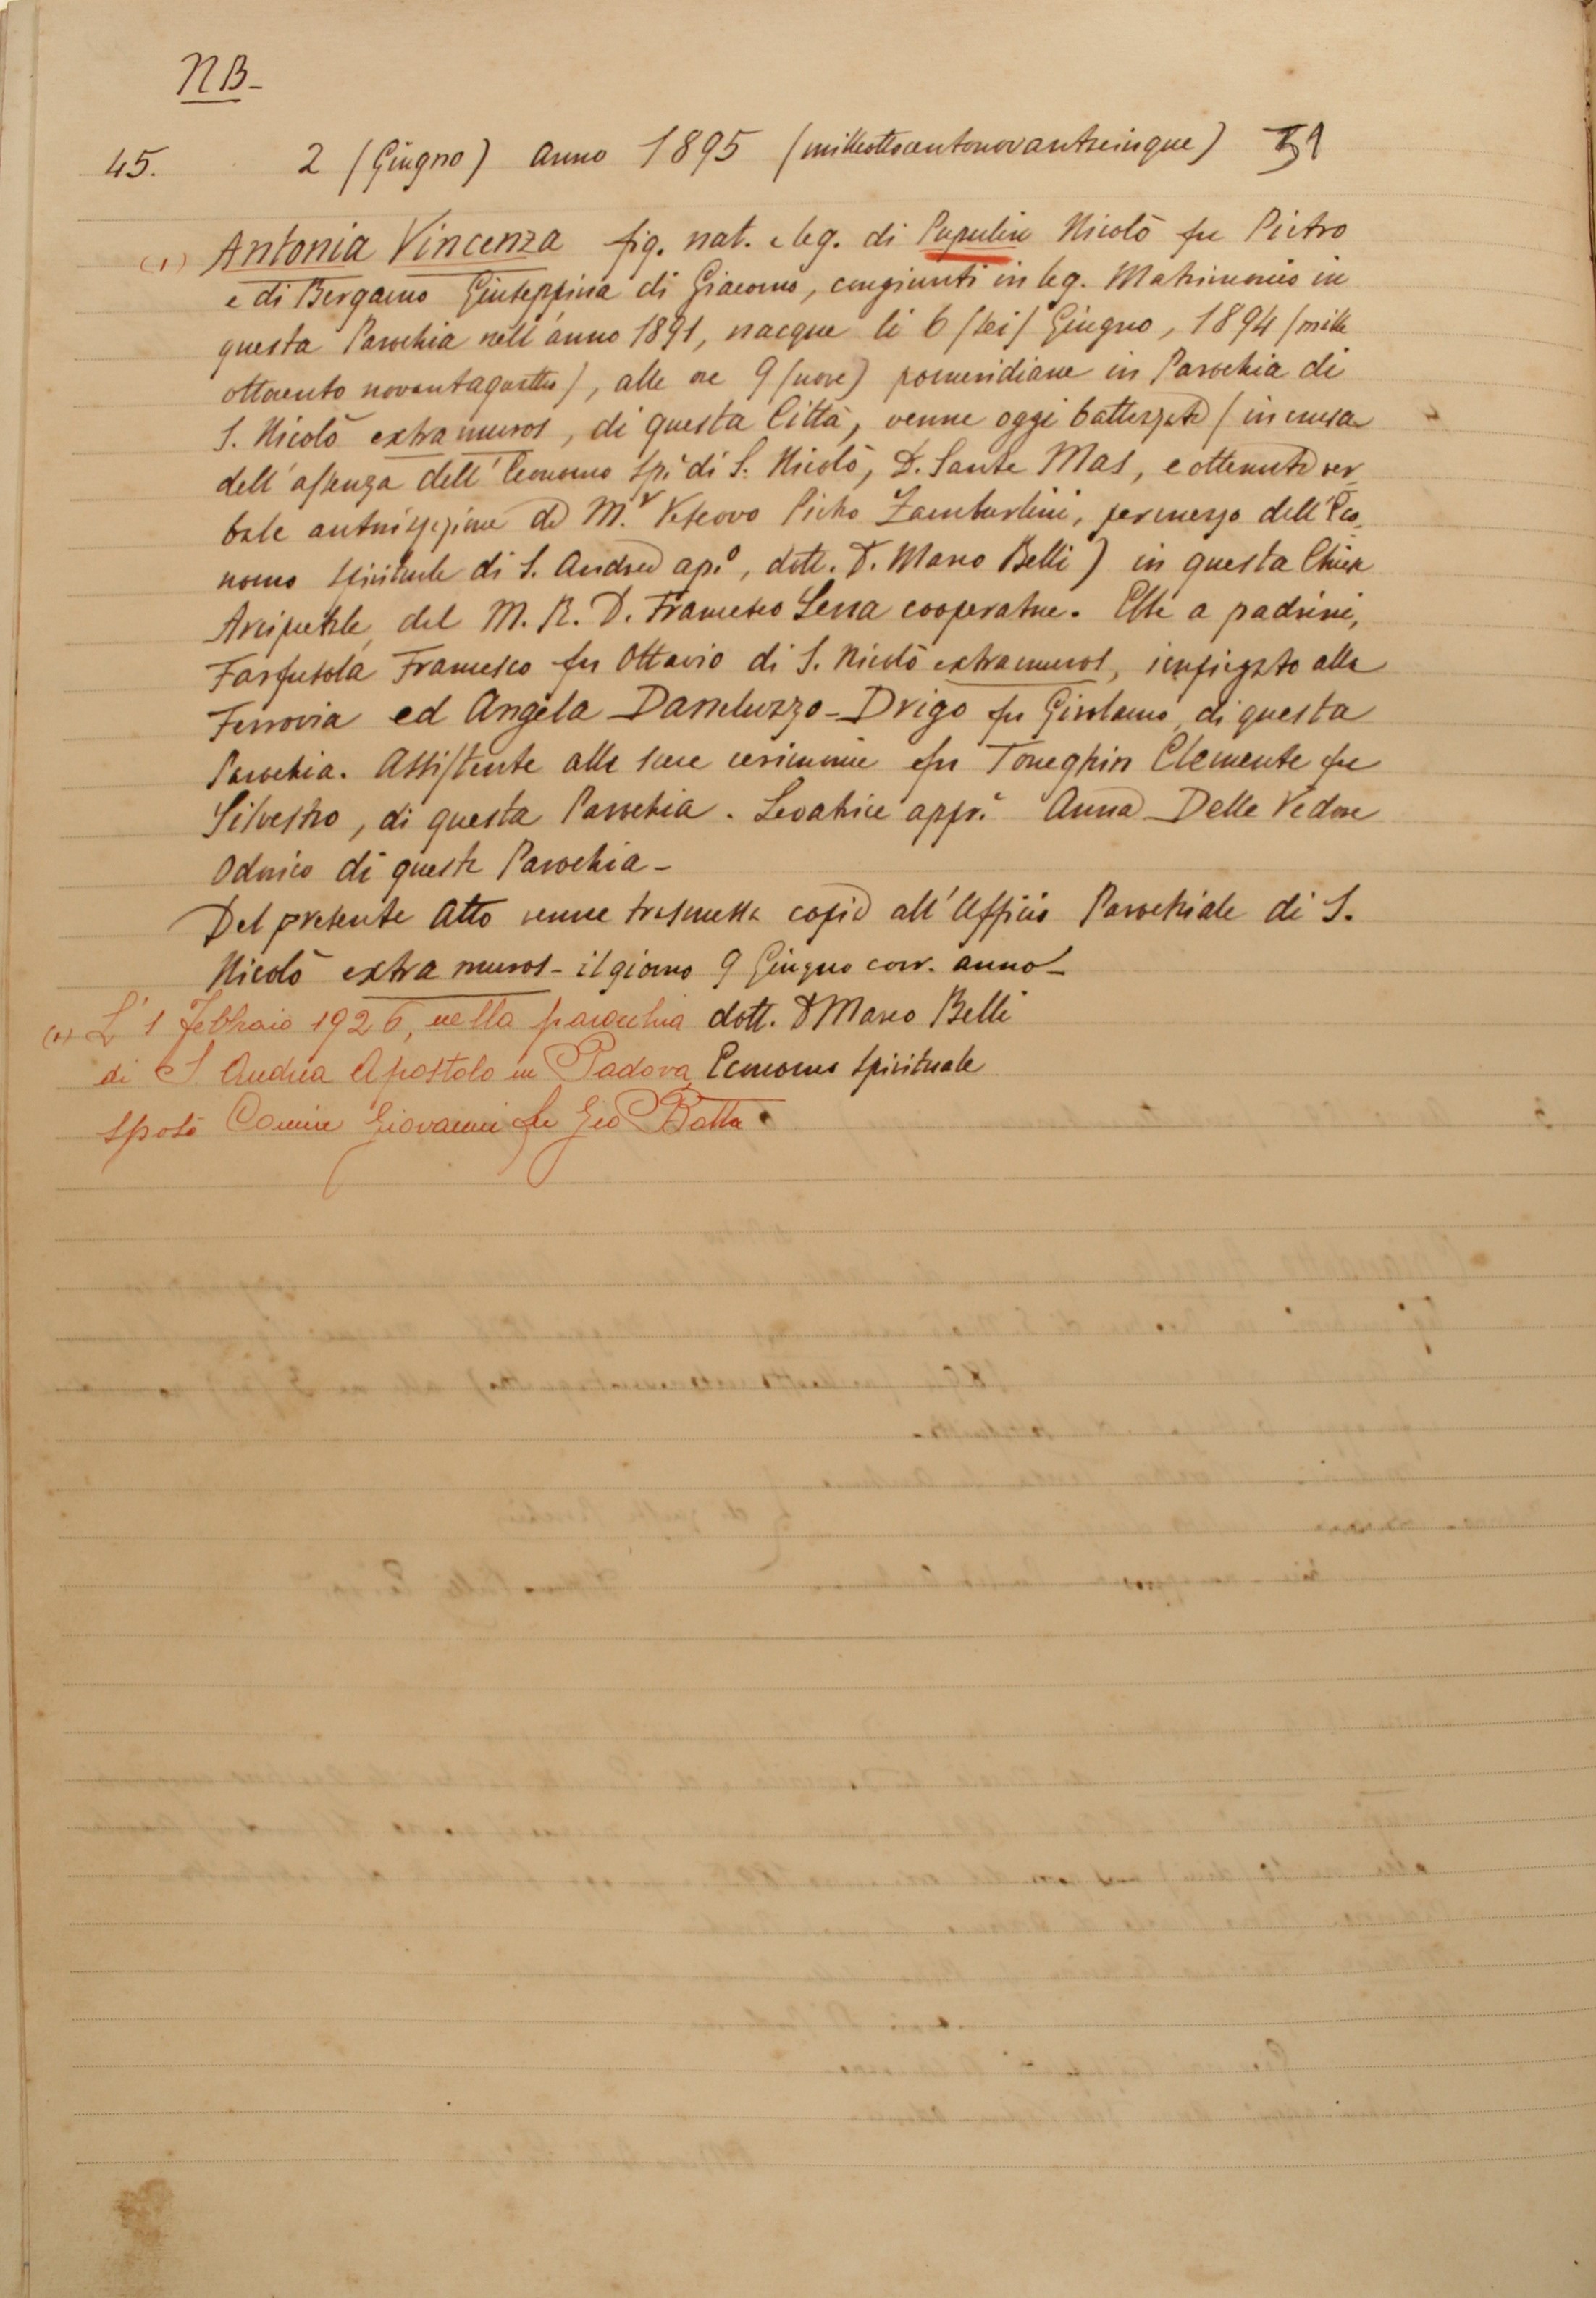 NB-
45. 2 (Giugno) Anno 1895 (milleottocentonovantacinque) 39
(1) Antonia Vincenza fig. nat. e leg. di Papulin Nicolò fu Pietro
e di Bergamo Giuseppina di Giacomo, congiunti in leg. Matrimonio in
questa Parochia nell'anno 1891, nacque li 6 (sei) Giugno, 1894 (mille
ottocento novantaquattro), alle ore 9 (nove) pomeridiane in Parochia di
S. Nicolò extra muros, di questa Città, venne oggi battezzata (in causa
dell'assenza dell'Economo Spi. di S. Nicolò, D. Sante Mas, e ottenuta ver
bale autorizzazione da M.r Vescovo Pietro Zamburlini, per mezzo dell'Eco
nomo Spirituale di S. Andrea ap.o, dott. D. Marco Belli) in questa Chiesa
Arcipretale, dal M. R. D. Francesco Sena cooperatore. Ebbe a padrini,
Farfusola Francesco fu Ottavio di S. Nicolò extra muros, impiegato alla
Ferrovia ed Angela Daneluzzo-Drigo fu Girolamo, di questa
Parochia. Assistente alle sacre cerimonie fu Toneghin Clemente fu
Silvestro, di questa Parochia. Levatrice appr. Anna Delle Vedove
Odorico di questa Parochia-
Del presente Atto venne trasmessa copia all'Ufficio Parochiale di S.
Nicolò extra muros- il giorno 9 Giugno corr. anno-
(1) L'1 Febbraio 1926, nella parochia dott. D Marco Belli
di S. Andrea Apostolo in Padova Economo Spirituale
sposò Comin Giovanni fu Gio Batta